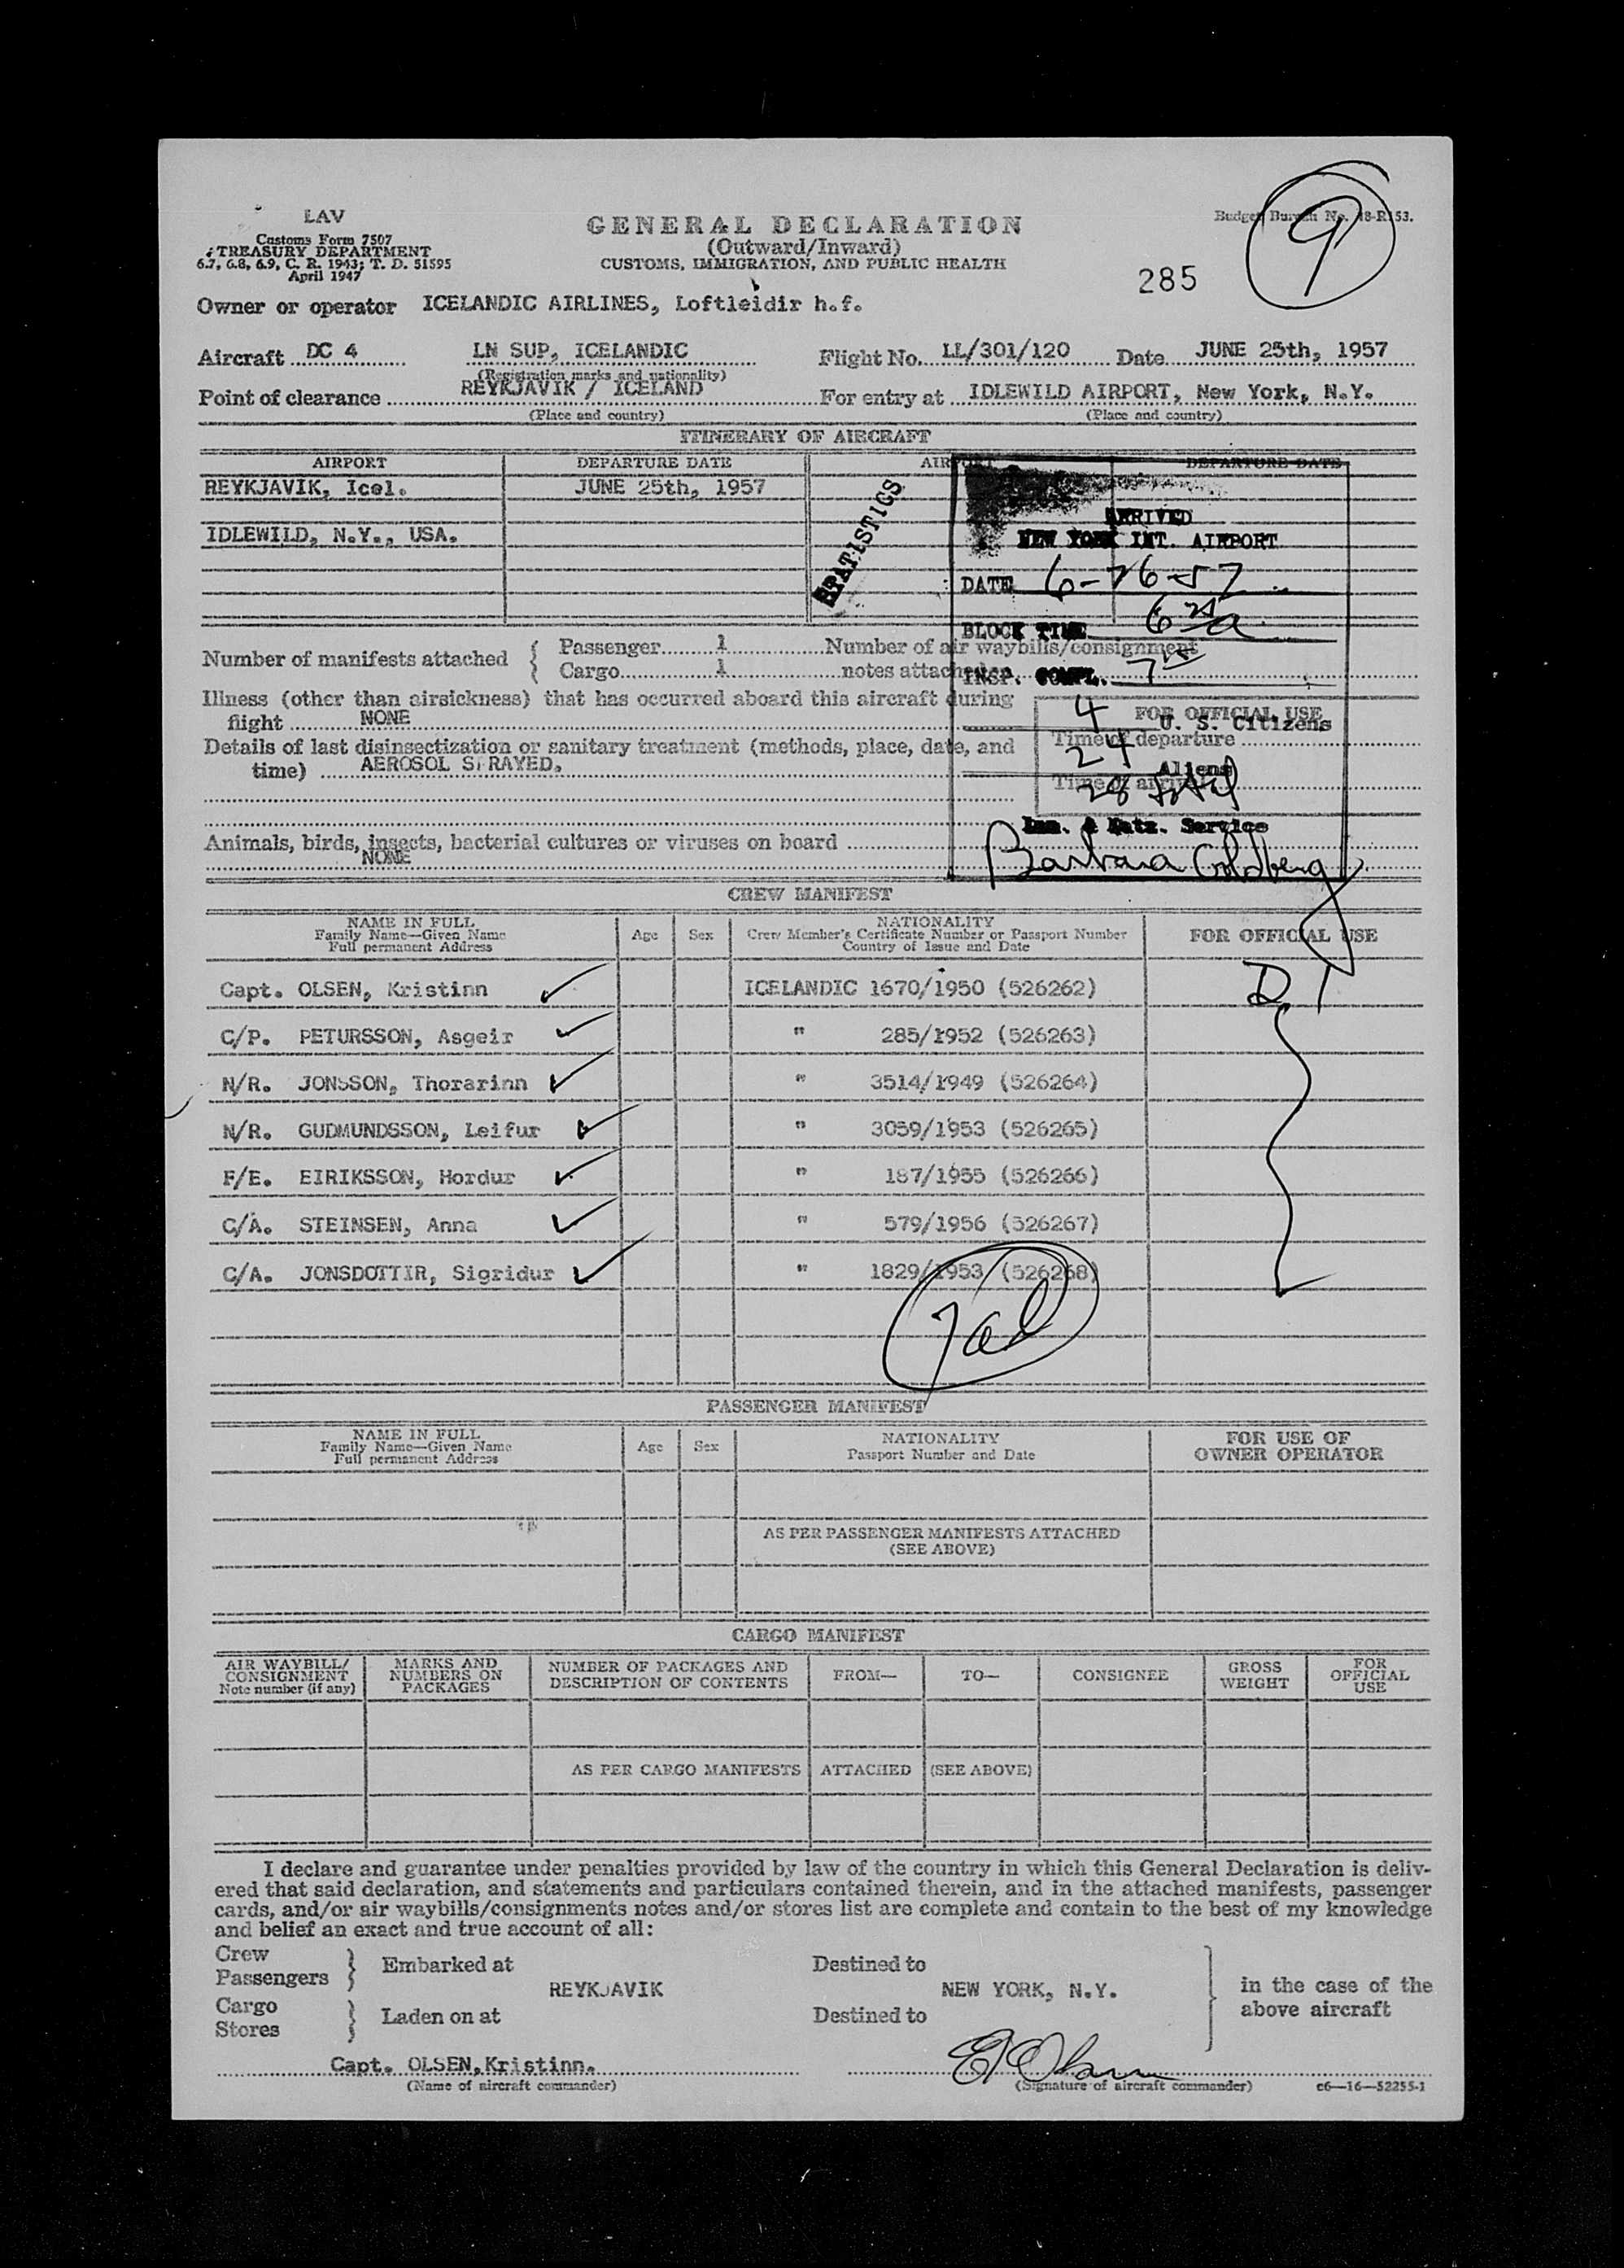 LAV
Customs Form 7507
TREASURY DEPARTMENT
6.7, 6.8, 6.9, C. R. 1943; T. D. 51595
April 1947
GENERAL DECLARATION
(Outward/Inward)
CUSTOMS, IMMIGRATION, AND PUBLIC HEALTH
Budget Bureau No. 48-R153.
9
285
Owner or operator ICELANDIC AIRLINES, Loftleidir h.f.
Aircraft DC 4 LN SUP, ICELANDIC Flight No. LL/301/120 Date JUNE 25th, 1957
(Registration marks and nationality)
Point of clearance REYKJAVIK / ICELAND For entry at IDLEWILD AIRPORT, New York, N.Y.
(Place and country) (Place and country)
ITINERARY OF AIRCRAFT
AIRPORT DEPARTURE DATE AIRPORT DEPARTURE DATE
REYKJAVIK, Icel. JUNE 25th, 1957
IDLEWILD, N.Y., USA.
STATISTICS
ARRIVED
NEW YORK INT. AIRPORT
DATE 6-26-57
BLOCK TIME
INSP. COMPL. 7
4 U. S. Citizens
24 Aliens
28 total
Imm. & Natz. Service
Barbara Goldberg
Number of manifests attached { Passenger 1 Number of air waybills/consignment
Cargo 1 notes attached
Illness (other than airsickness) that has occurred aboard this aircraft during
flight NONE
FOR OFFICIAL USE
Time of departure
Time of arrival
Details of last disinsectization or sanitary treatment (methods, place, date, and
time) AEROSOL SPRAYED.
Animals, birds, insects, bacterial cultures or viruses on board
NONE
CREW MANIFEST
NAME IN FULL
Family Name—Given Name
Full permanent Address
Age Sex
NATIONALITY
Crew Member's Certificate Number or Passport Number
Country of Issue and Date
FOR OFFICIAL USE
Capt. OLSEN, Kristinn ICELANDIC 1670/1950 (526262) D1
C/P. PETURSSON, Asgeir " 285/1952 (526263)
N/R. JONSSON, Thorarinn " 3514/1949 (526264)
N/R. GUDMUNDSSON, Leifur " 3059/1953 (526265)
F/E. EIRIKSSON, Hordur " 187/1955 (526266)
C/A. STEINSEN, Anna " 579/1956 (526267)
C/A. JONSDOTTIR, Sigridur " 1829/1953 (526268)
PASSENGER MANIFEST
NAME IN FULL
Family Name—Given Name
Full permanent Address
Age Sex
NATIONALITY
Passport Number and Date
FOR USE OF
OWNER OPERATOR
AS PER PASSENGER MANIFESTS ATTACHED
(SEE ABOVE)
CARGO MANIFEST
AIR WAYBILL/
CONSIGNMENT
Note number (if any)
MARKS AND
NUMBERS ON
PACKAGES
NUMBER OF PACKAGES AND
DESCRIPTION OF CONTENTS
FROM— TO— CONSIGNEE
GROSS
WEIGHT
FOR
OFFICIAL
USE
AS PER CARGO MANIFESTS ATTACHED (SEE ABOVE)
I declare and guarantee under penalties provided by law of the country in which this General Declaration is deliv-
ered that said declaration, and statements and particulars contained therein, and in the attached manifests, passenger
cards, and/or air waybills/consignments notes and/or stores list are complete and contain to the best of my knowledge
and belief an exact and true account of all:
Crew
Passengers } Embarked at Destined to
REYKJAVIK NEW YORK, N.Y.
Cargo
Stores } Laden on at Destined to
in the case of the
above aircraft
Capt. OLSEN,Kristinn.
(Name of aircraft commander) (Signature of aircraft commander) c6—16—52255-1